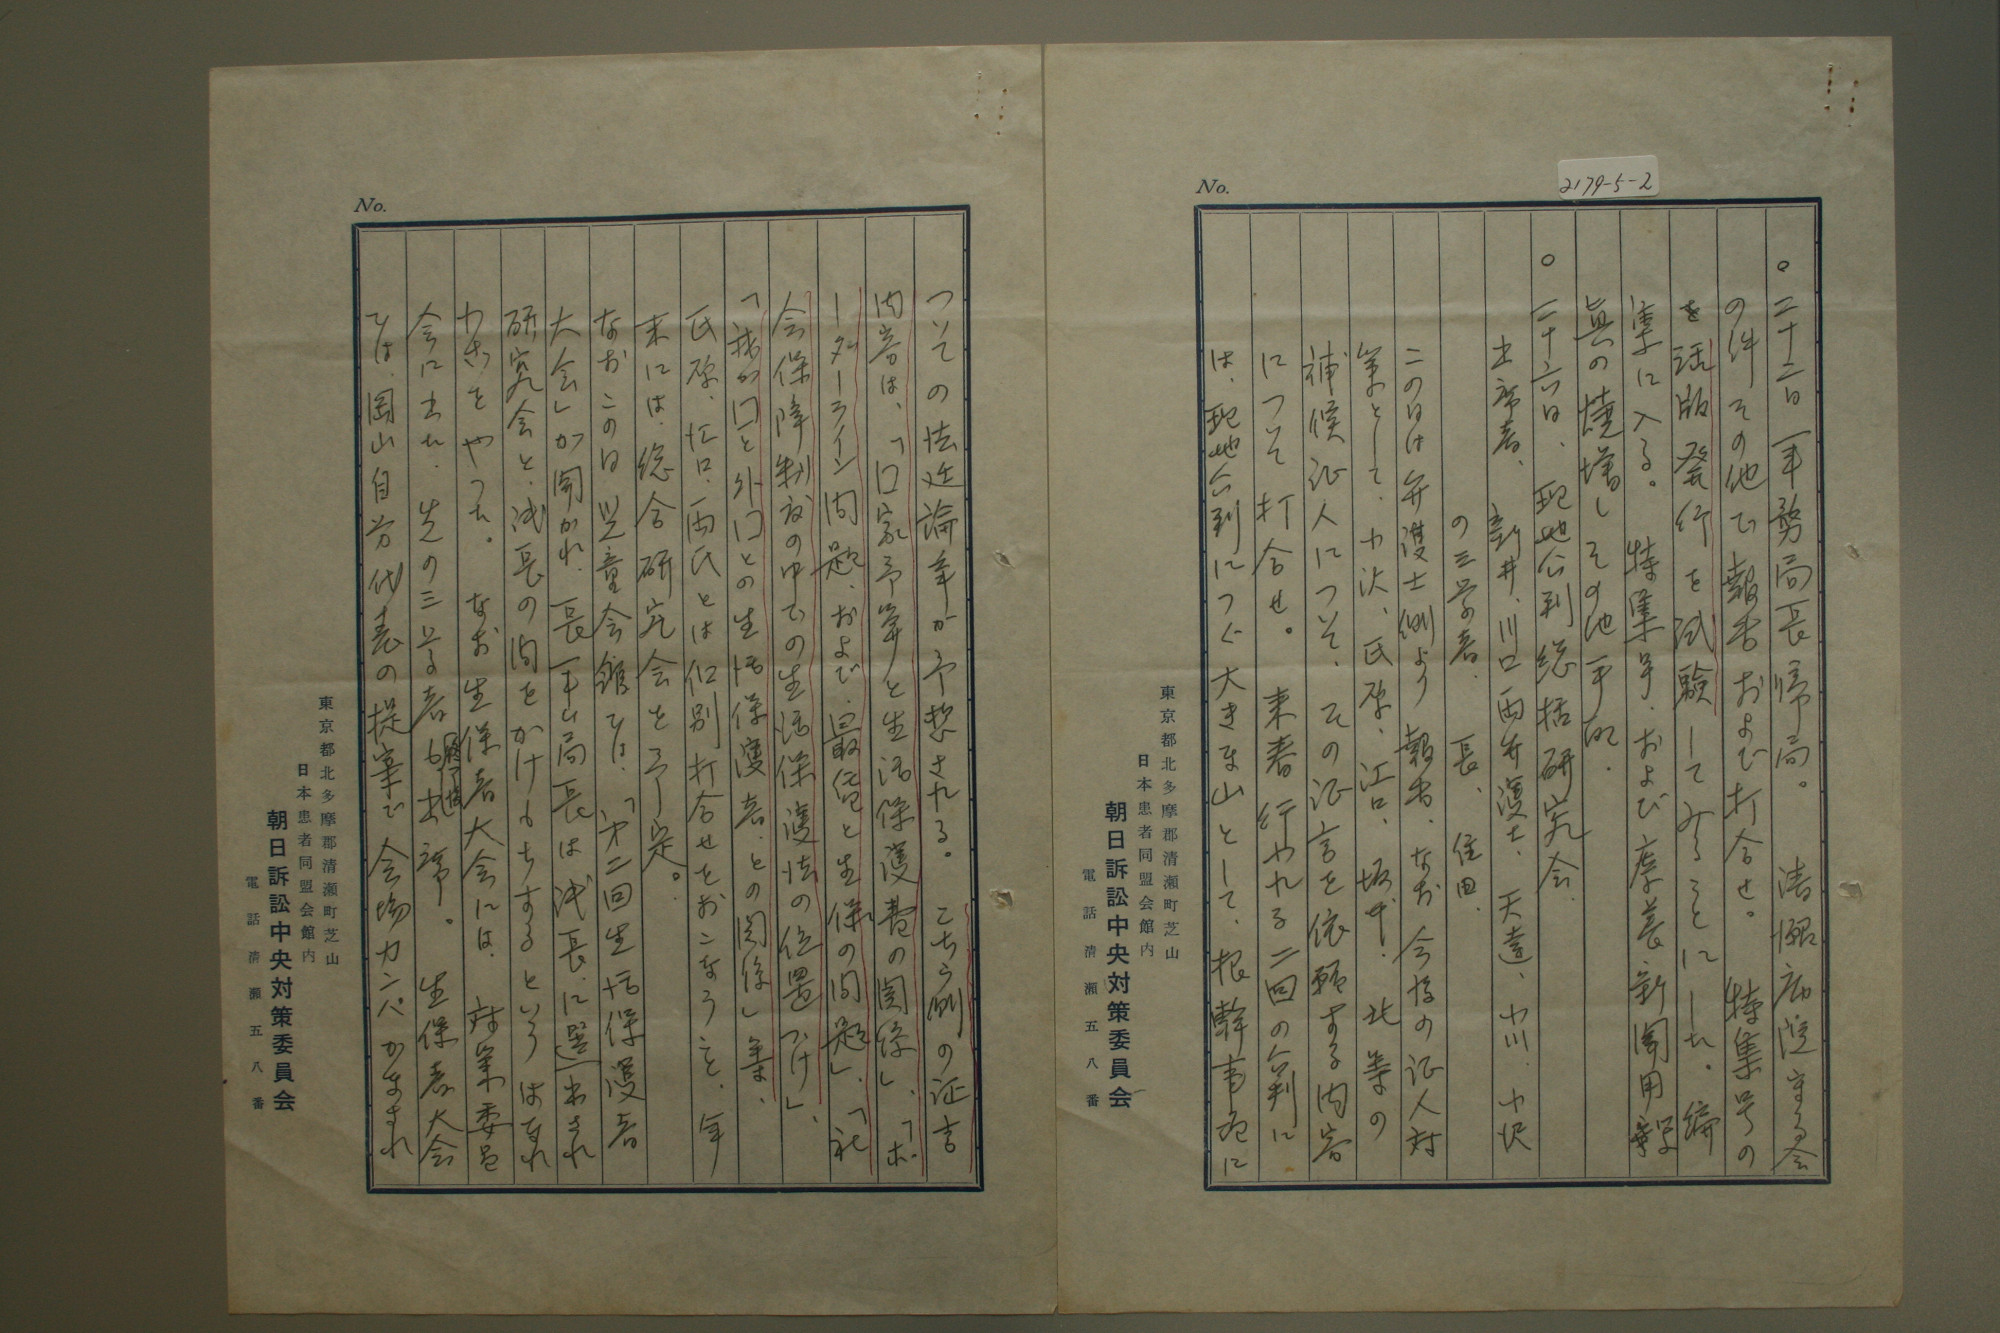 2179-5-2
No.
○二十二日 事務局長帰局。 清瀬病院守る会
の件その他で報告および打合せ。 特集号の
を活版発行を試験してみることにした。編
集に入る。 特集号、および療養新聞用写
真の焼増しその他手配。
○二十六日、現地公判総括研究会
出席者、新井、川口両弁護士、天達、小川、小沢
の三学者、長、住田、
この日は弁護士側より報告、なお今後の証人対
策として、小沢、氏原、江口、 北 等の
補候証人について、その証言を依頼する内容
について打合せ。来春行われる二回の公判に
は、現地公判につぐ大きな山として、根幹事項に
東京都北多摩郡清瀬町芝山
日本患者同盟会館内
朝日訴訟中央対策委員会
電話清瀬五八番
No.
ついての法廷論争が予想される。こちら側の証言
内容は、「口家予算と生活保護費の関係」、「ボ
ーダーライン問題、および、最賃と生保の問題」、「社
会保障制度の中での生活保護法の位置づけ」、
「我が口と外口との生活保護者、との関係」等、
氏原、江口、両氏とは個別打合せをおこなうこと、年
末には、総合研究会を予定。
なおこの日児童会館では、「第二回生活保護者
大会」が開かれ、長事ム局長は議長に選出され
研究会と、議長の間をかけもちするというはなれ
わざをやった。 なお生保者大会には、対策委員
会に出た、先の三学者も 出席。 生保者大会
では、岡山自労代表の提案で会場カンパがなされ
東京都北多摩郡清瀬町芝山
日本患者同盟会館内
朝日訴訟中央対策委員会
電話清瀬五八番